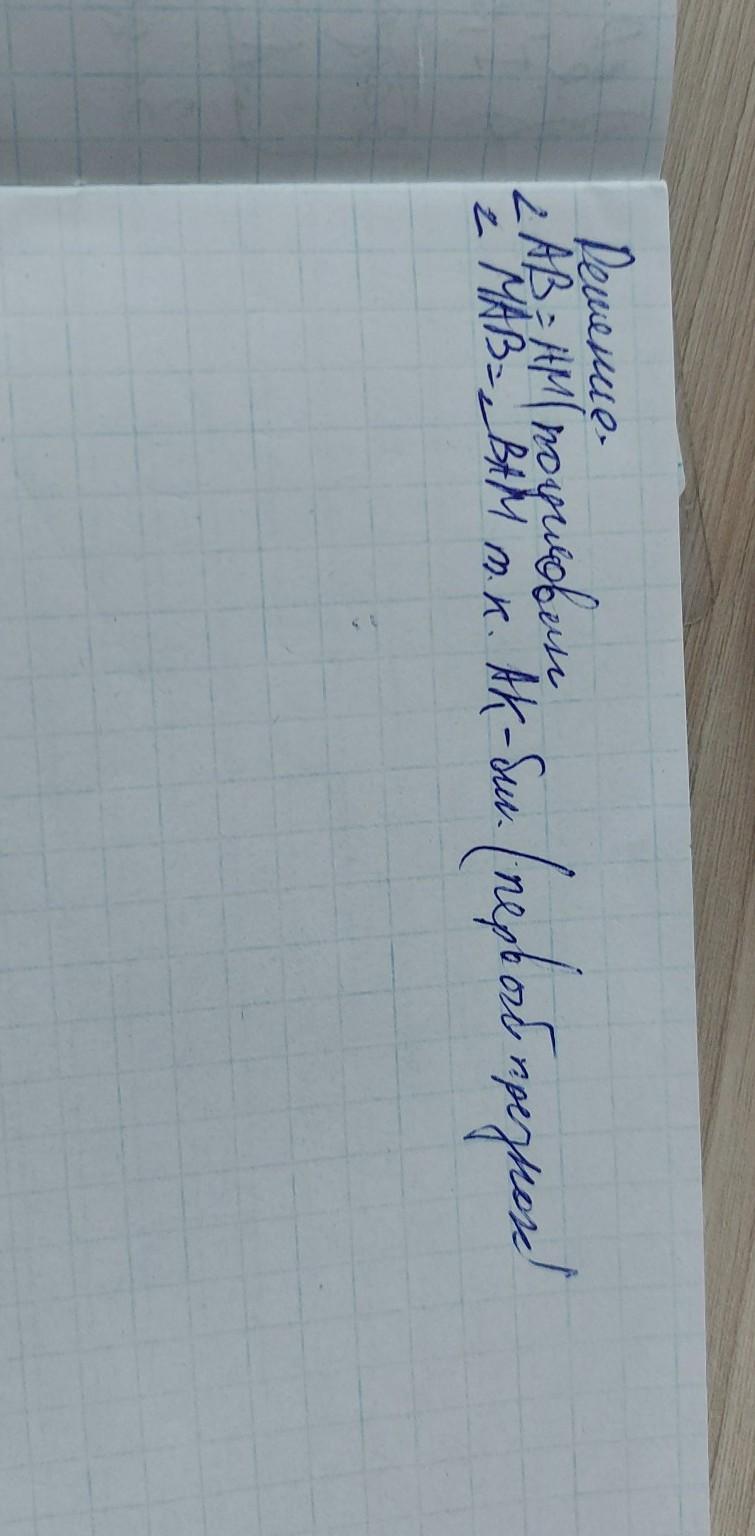 Решение.
∠ AB = AM (по условию
∠ MAB = ∠ BAM т.к. AK - бис. (первой признак)